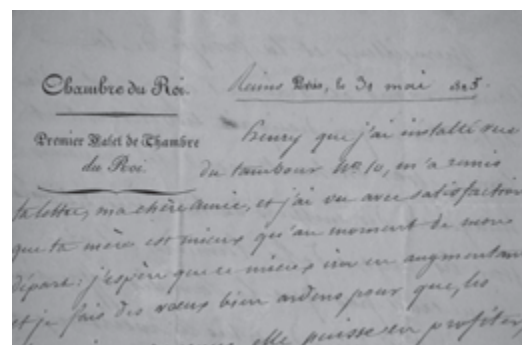 Chambre du Roi.
Reims Paris, le 30 mai 1825.
Premier Valet de Chambre
du Roi.
henry que j'ai installé rue
du tambour N° 10, m'a remis
ta lettre, ma chère amie, et j'ai vu avec satisfaction
que ta mère est mieux qu'au moment de mon
départ: j'espère que ce mieux ira en augmentant
et je fais des vœux bien ardens pour que, les
elle puisse en profiter,